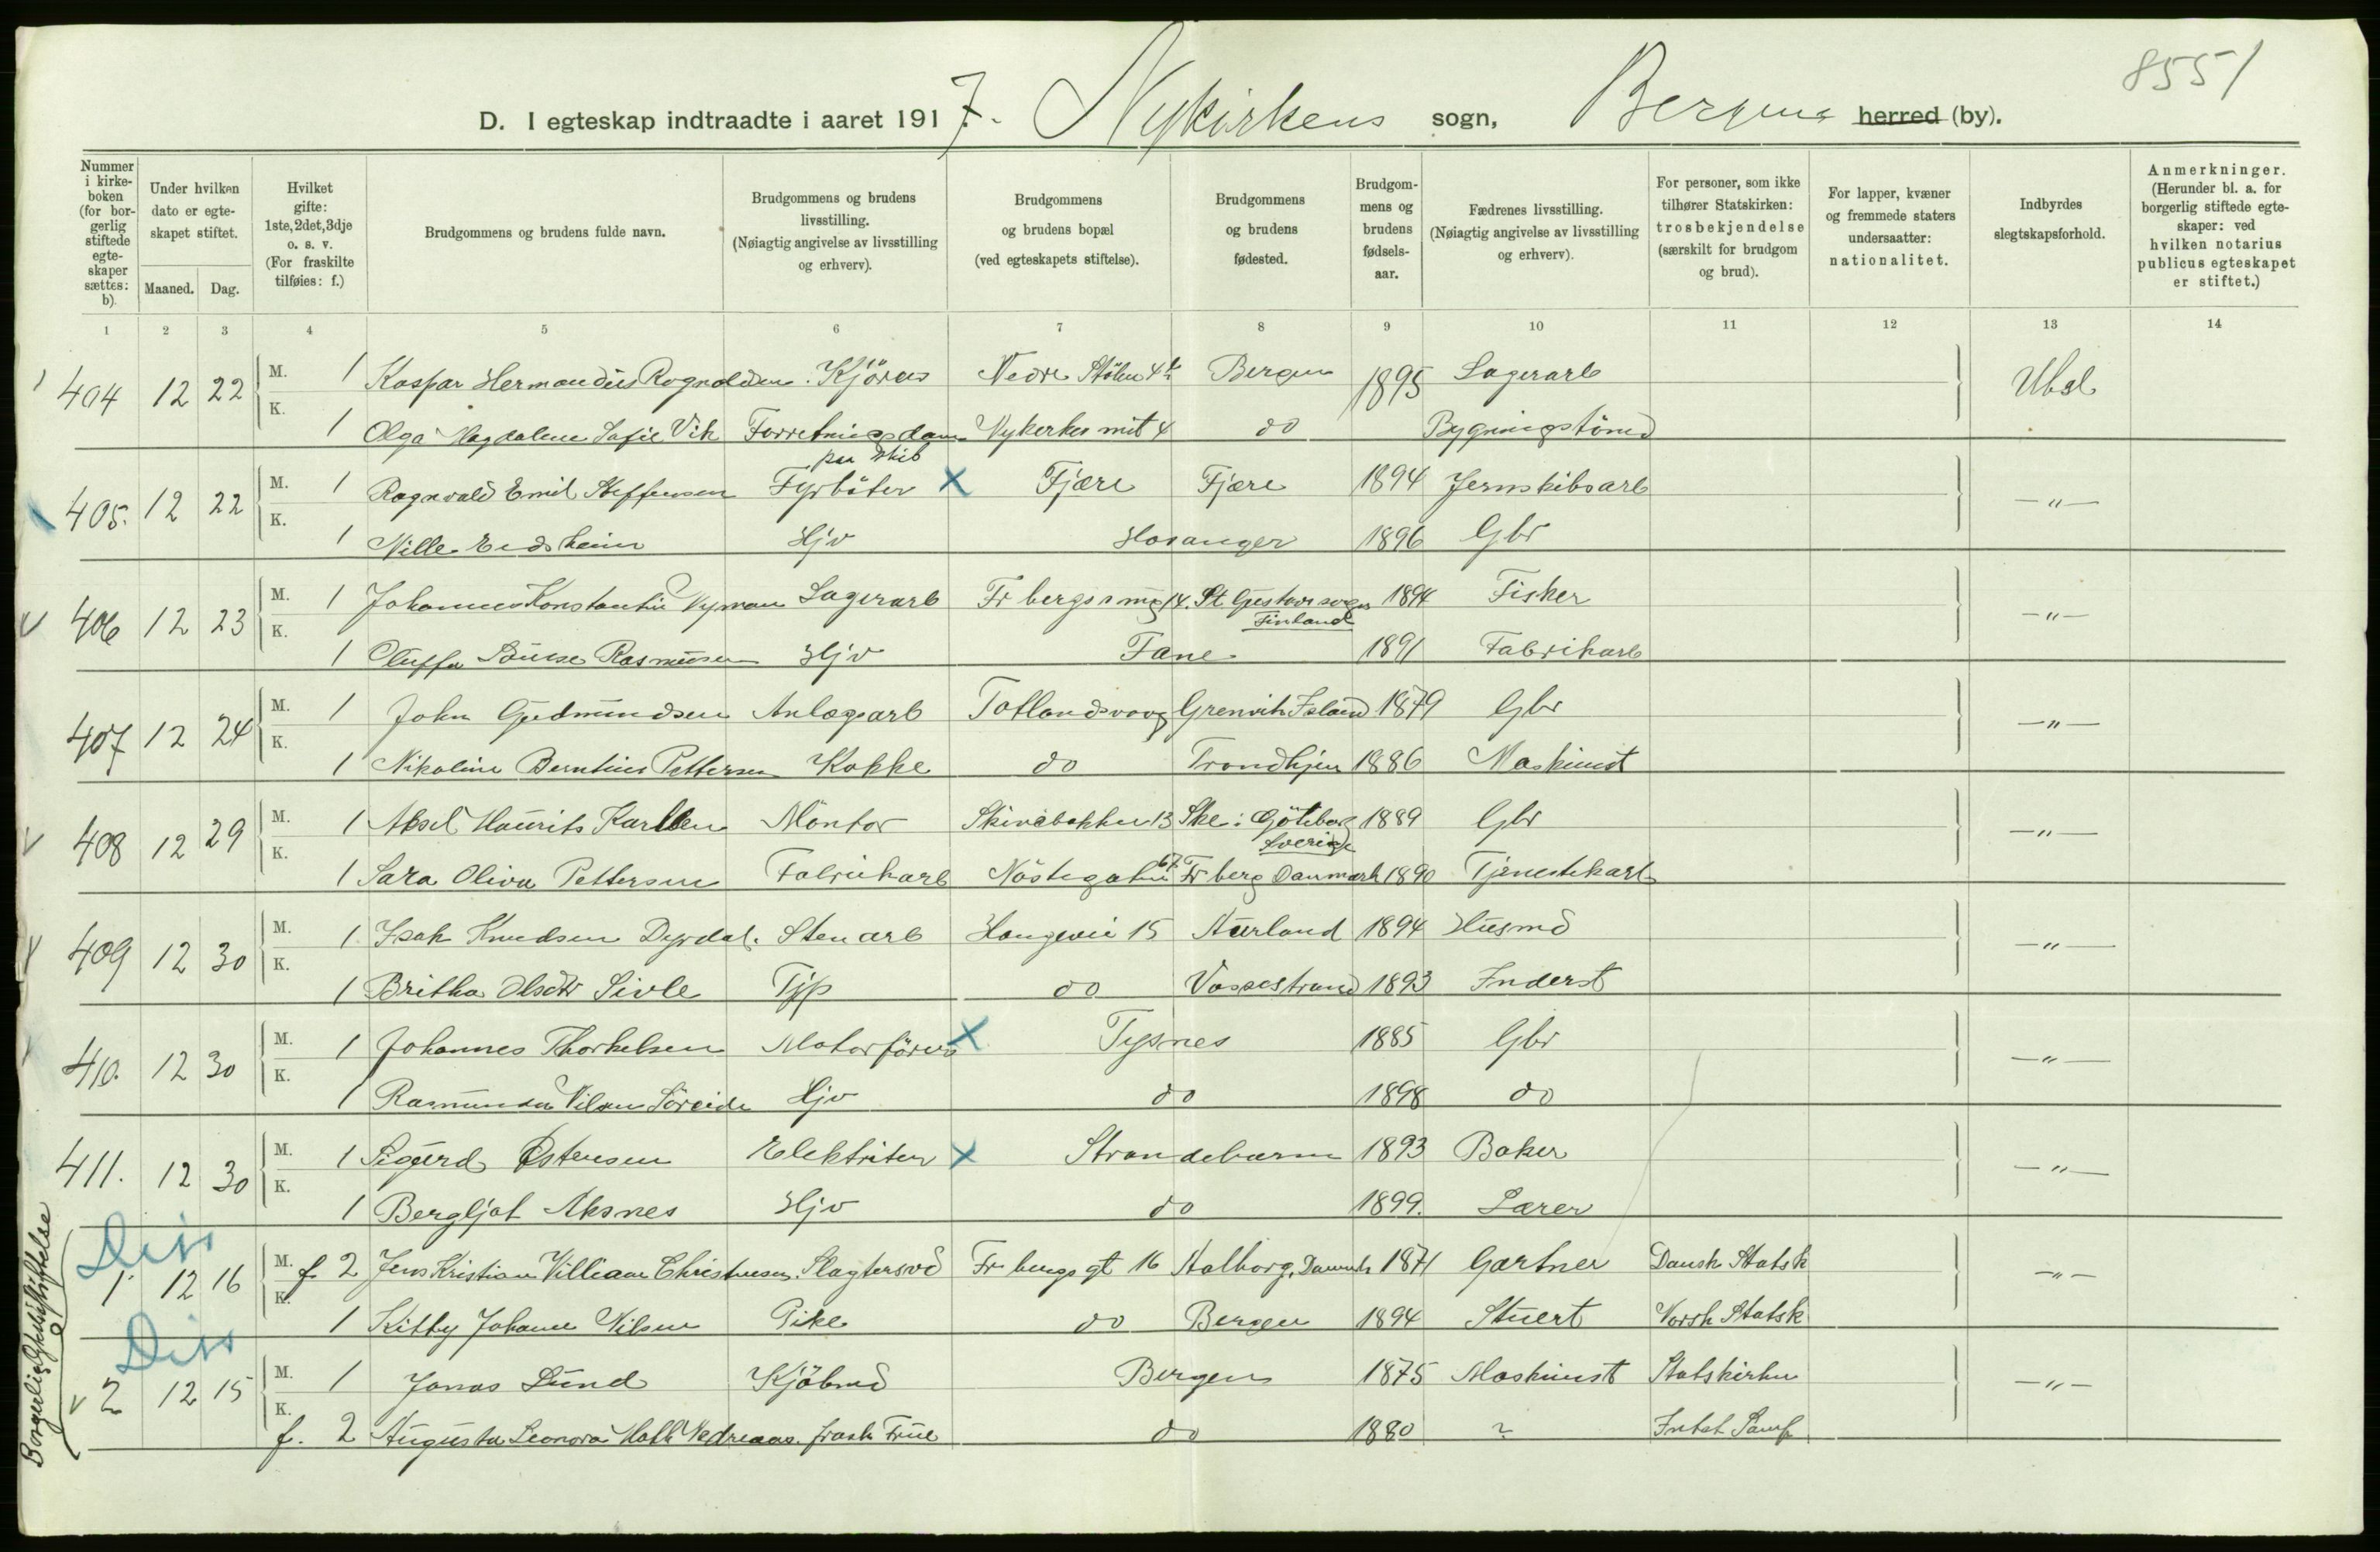 8551
D. I egteskap indtraadte i aaret 1917. Nykirkens sogn, Bergens herred (by).
Nummer i kirkeboken (for borgerlig stiftede egteskaper sættes: b).
Under hvilken dato er egteskapet stiftet.
Maaned. Dag.
Hvilket gifte: 1ste, 2det, 3dje o. s. v. (For fraskilte tilføies: f.)
Brudgommens og brudens fulde navn.
Brudgommens og brudens livsstilling. (Nøiagtig angivelse av livsstilling og erhverv).
Brudgommens og brudens bopæl (ved egteskapets stiftelse).
Brudgommens og brudens fødested.
Brudgommens og brudens fødselsaar.
Fædrenes livsstilling. (Nøiagtig angivelse av livsstilling og erhverv).
For personer, som ikke tilhører Statskirken: trosbekjendelse (særskilt for brudgom og brud).
For lapper, kvæner og fremmede staters undersaatter: nationalitet.
Indbyrdes slegtskapsforhold.
Anmerkninger. (Herunder bl. a. for borgerlig stiftede egteskaper: ved hvilken notarius publicus egteskapet er stiftet.)
1 2 3 4 5 6 7 8 9 10 11 12 13 14
404 12 22 M. 1 Kaspar Hermandus Rognaldsen Kjörer Nedre Stölen 4 b Bergen 1895 Lagerarb Ubsl
K. 1 Olga Magdalene Sofie Vik Forretningsdame Nykerkes mit 4 do Bygningstömd
405. 12 22 M. 1 Ragnvald Emil Steffensen Fyrböter paa Skib X Fjære Fjære 1894 Jernskibsarb —"—
K. 1 Nille Eidsheim Hjv Hosanger 1896 Gbr
V 406 12 23 M. 1 Johannes Konstantin Nyman Lagerarb Fr bergs smg 14. St Gustavs sogn Finland 1894 Fisker —"—
K. 1 Oluffa Louise Rasmussen Hjv Fane 1891 Fabrikarb
407 12 24 M. 1 John Gudmundsen Anlægsarb Totlandsvaag Grenvik Island 1879 Gbr —"—
K. 1 Nikoline Berntine Pettersen Kokke do Trondhjem 1886 Maskinist
V 408 12 29 M. 1 Aksel Maurits Karlsen Montör Skivebakken 13 Ske: Göteborg Sverige 1889 Gbr —"—
K. 1 Sara Oliva Pettersen Fabrikarb Nöstegaten 67 Fr berg Danmark 1890 Tjenestekarl
409 12 30 M. 1 Isak Knudsen Dyrdal. Stenarb Haugevei 15 Aurland 1894 Husmd —"—
K. 1 Britha Olsdtr Sivle Tjp do Vossestrand 1893 Inderst
410. 12 30 M. 1 Johannes Thorkelsen Motorförer X Tysnes 1885 Gbr —"—
K. 1 Rasmunda Nilsen Söreide Hjv do 1898 do
411. 12 30 M. 1 Sigurd Østensen Elektriker X Strandebarm 1893 Baker —"—
K. 1 Bergljot Aksnes Hjv do 1899. Lærer
Borgerlig Egteskabsstiftelse
Diss
1 12 16 M. f. 2 Jens Kristian Villiam Christensen. Slagtersvd Fr bergs gt 16 Aalborg, Danmk 1871 Gartner Dansk Statsk —"—
K. 1 Kitty Johanne Nilsen Pike do Bergen 1894 Stuert Norsk Statsk
Diss
V 2 12 15 M. 1 Jonas Lund Kjöbmd Bergen 1875 Maskinist Statskirken —"—
K. f. 2 Augusta Leonora Hall Nedreaas. frask Frue do 1880 ? Intet Samf